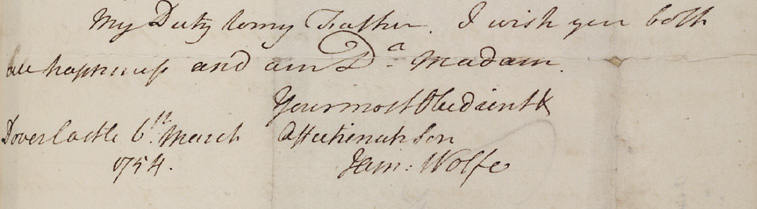 My Duty to my Father. I wish you both
all happiness and am Dr. Madam.
Your most Obedient &
Dover Castle 6th. March Affectionate Son
1754. Jam: Wolfe